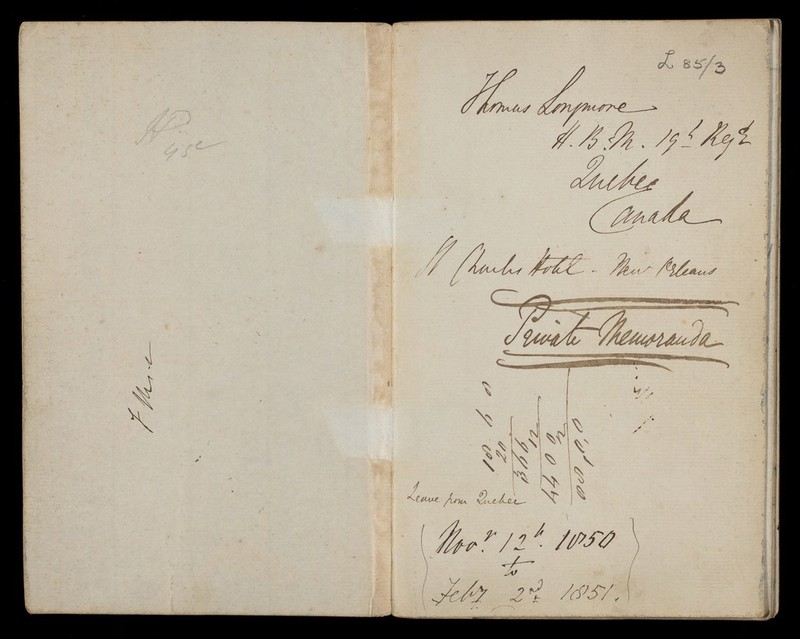 L 85/3
Thomas Longmore
H. B. M. 19th Regt
Quebec
Canada
St Charles Hotel - New Orleans
Private Memoranda
18 6 0
20
366
12
4400
2
8800
Leave from Quebec
Novr. 12th. 1850
to
Feby 2nd 1851.